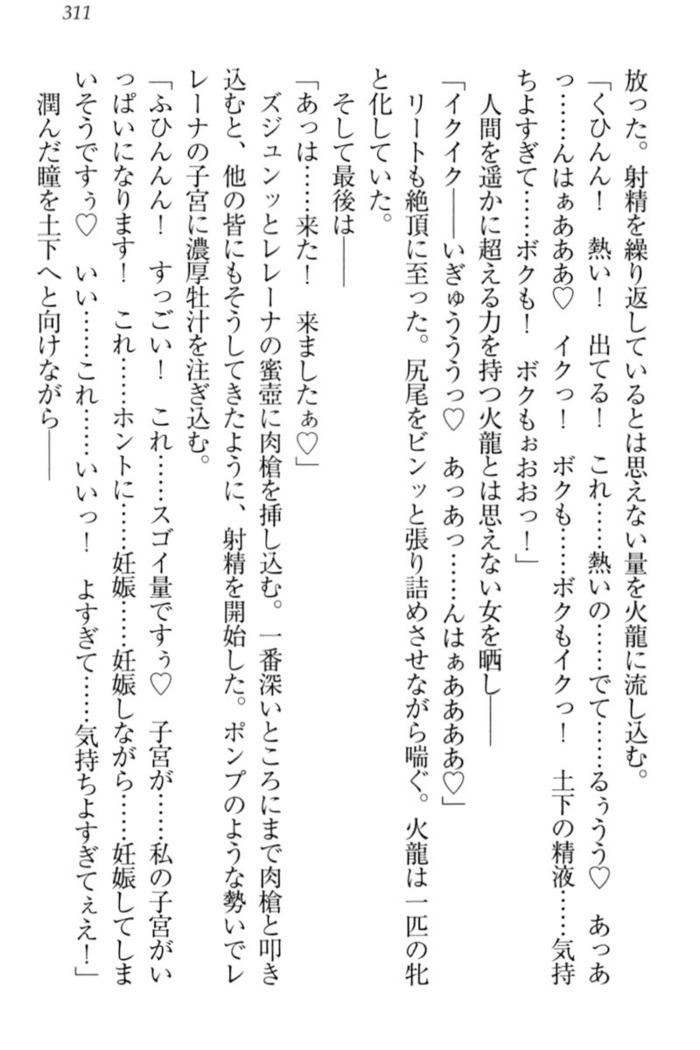 311
放った。射精を繰り返しているとは思えない量を火龍に流し込む。
「くひんん！　熱い！　出てる！　これ……熱いの……でて……るぅうう♡　あっあ
っ……んはぁあああ♡　イクっ！　ボクも……ボクもイクっ！　土下の精液……気持
ちよすぎて……ボクも！　ボクもぉおおっ！」
人間を遥かに超える力を持つ火龍とは思えない女を晒し――
「イクイク――いぎゅうううっ♡　あっあっ……んはぁああああ♡」
リートも絶頂に至った。尻尾をビンッと張り詰めさせながら喘ぐ。火龍は一匹の牝
と化していた。
そして最後は――
「あっは……来た！　来ましたぁ♡」
ズジュンッとレレーナの蜜壺に肉槍を挿し込む。一番深いところにまで肉槍と叩き
込むと、他の皆にもそうしてきたように、射精を開始した。ポンプのような勢いでレ
レーナの子宮に濃厚牡汁を注ぎ込む。
「ふひんんん！　すっごい！　これ……スゴイ量ですぅ♡　子宮が……私の子宮がい
っぱいになります！　これ……ホントに……妊娠……妊娠しながら……妊娠してしま
いそうですぅ♡　いい……これ……いいっ！　よすぎて……気持ちよすぎてぇえ！」
潤んだ瞳を土下へと向けながら――